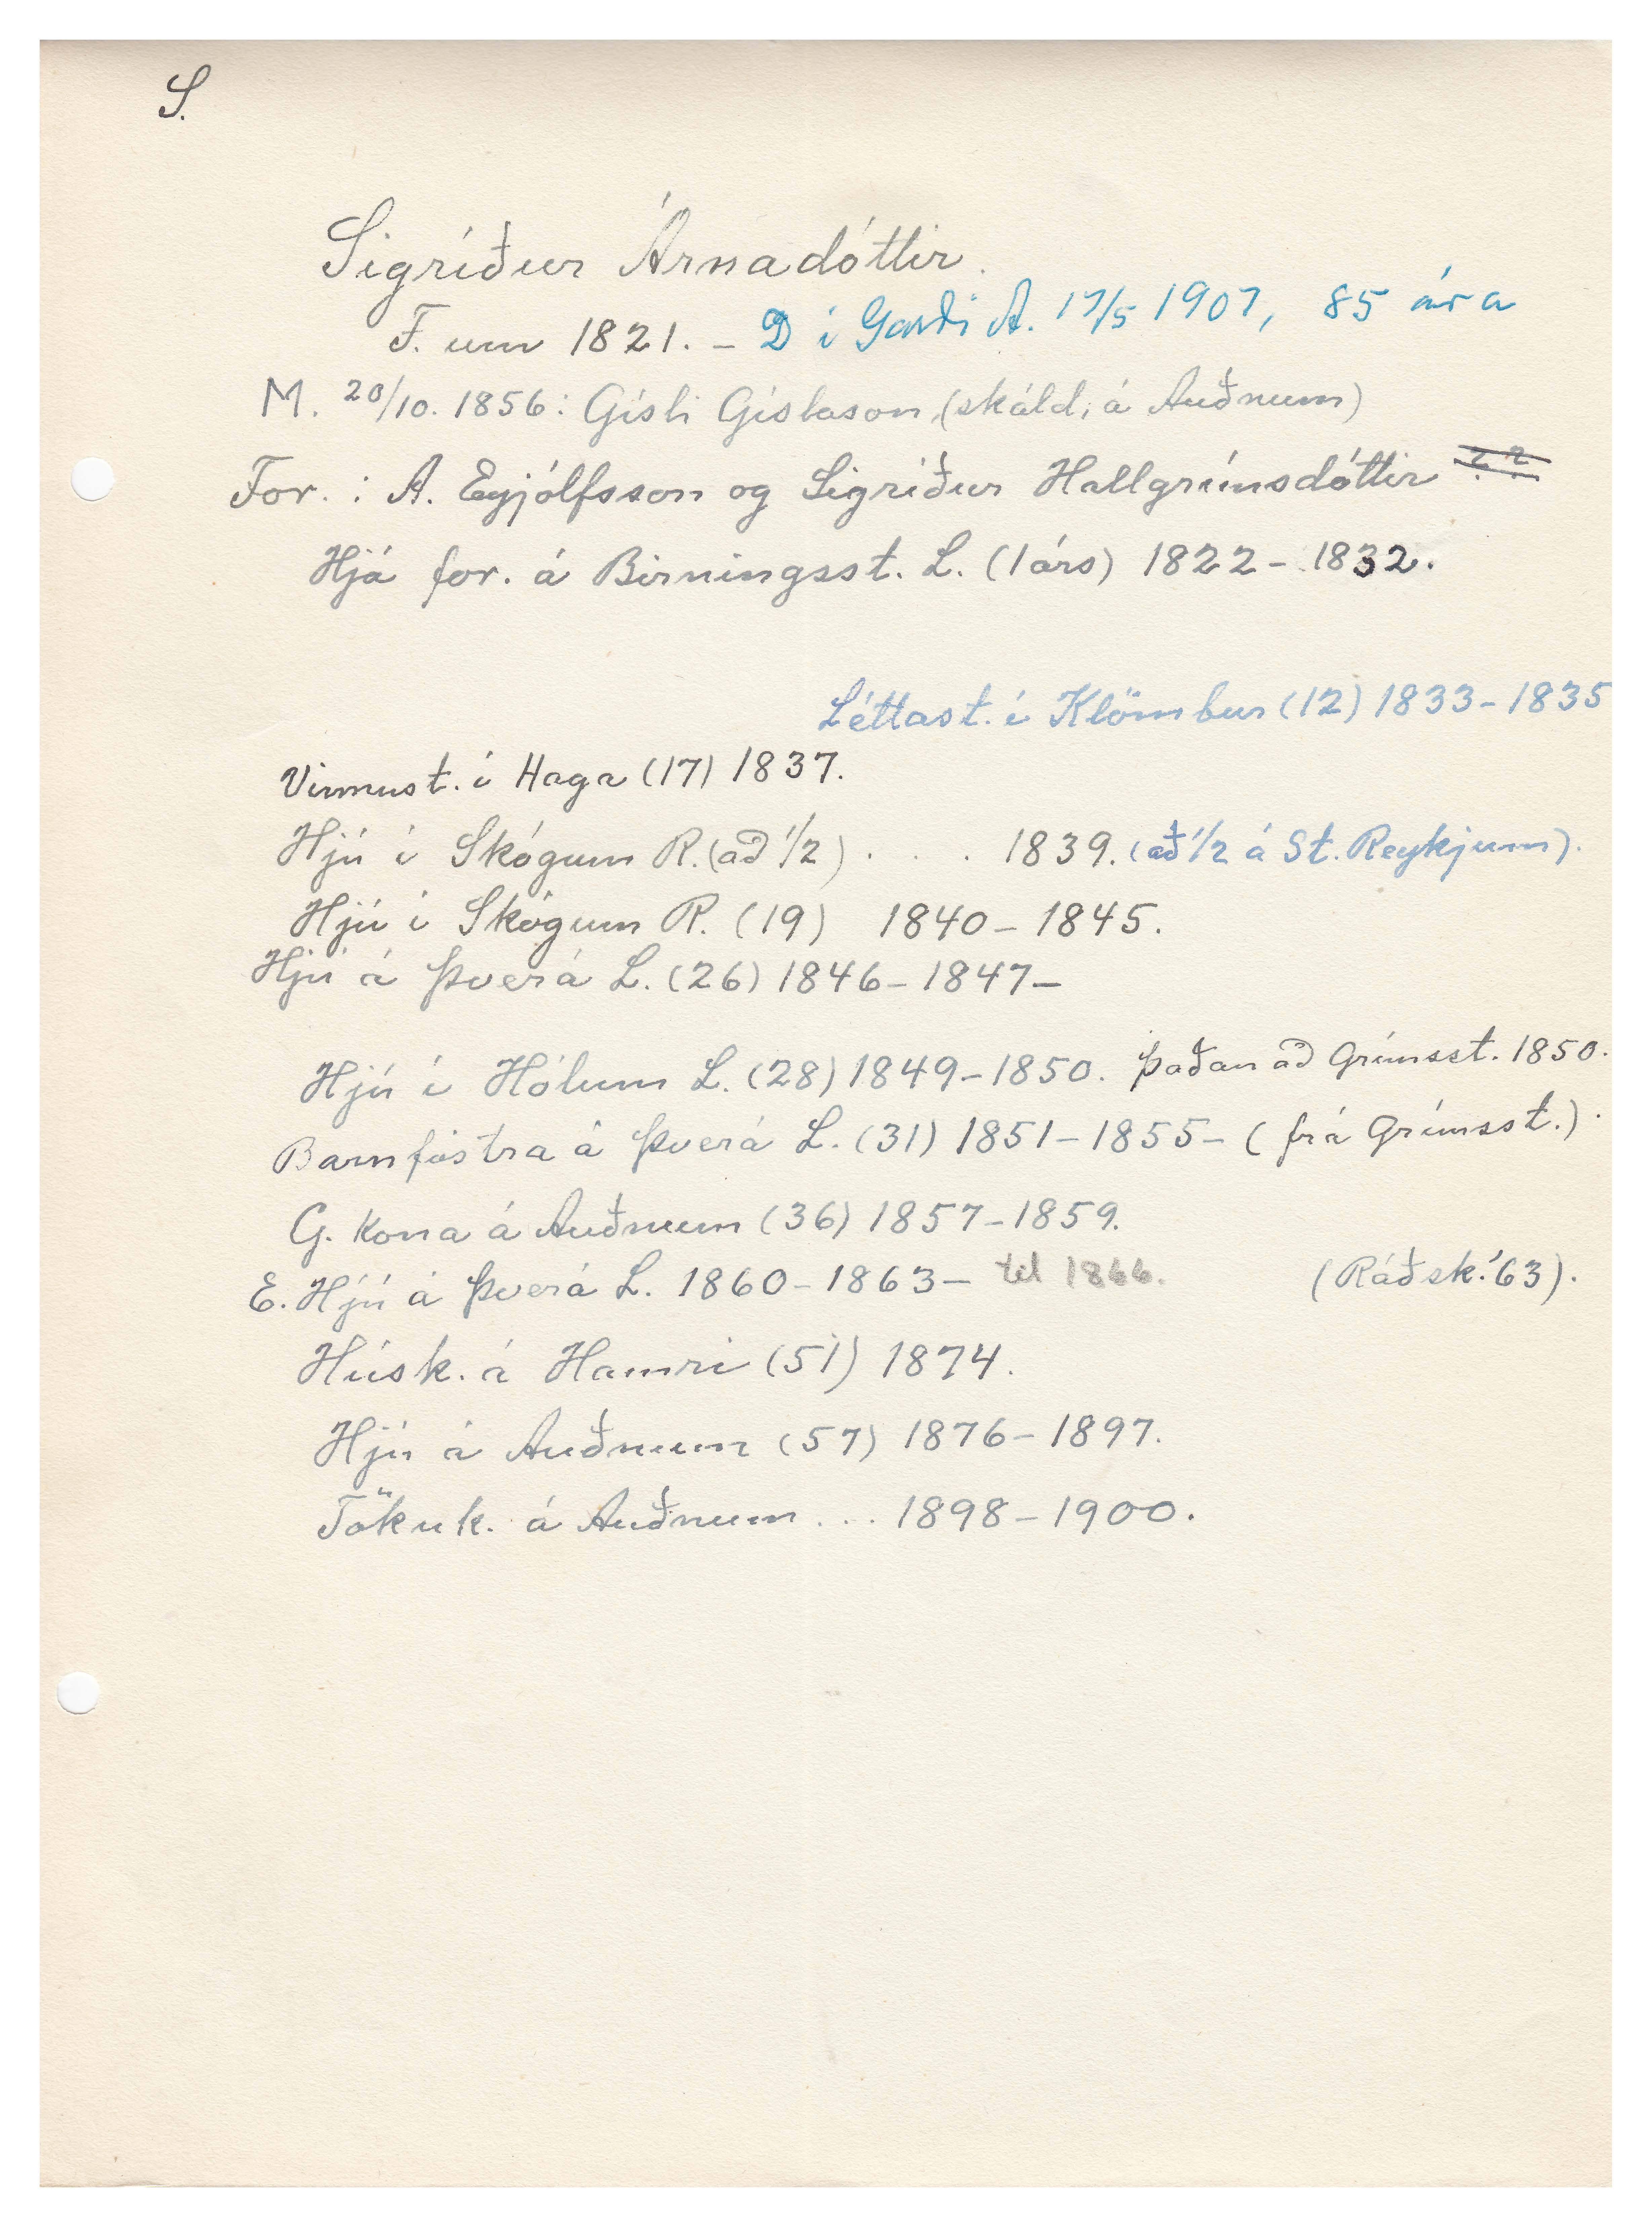 S.
Sigríður Árnadóttir.
F. um 1821. – D í Garði A. 17/5 1907, 85 ára
M. 20/10. 1856: Gísli Gíslason, (skáld; á Auðnum)
For. : Á. Eyjólfsson og Sigríður Hallgrímsdóttir
Hjá for. á Birningsst. L. (1árs) 1822 – 1832.
Léttast. í Klömbur (12) 1833 – 1835
Vinnust. í Haga (17) 1837.
Hjú í Skógum R. (að 1/2) . . . 1839. (að 1/2 á St. Reykjum).
Hjú í Skógum R. (19) 1840 – 1845.
Hjú á Þverá L. (26) 1846 – 1847 –
Hjú í Hólum L. (28) 1849 – 1850. Þaðan að Grímsst. 1850.
Barnfóstra á Þverá L. (31) 1851 – 1855 – (frá Grímsst.).
G. kona á Auðnum (36) 1857 – 1859.
E. Hjú á Þverá L. 1860 – 1863 – til 1866. (Ráðsk. '63).
Húsk. á Hamri (51) 1874.
Hjú á Auðnum (57) 1876 – 1897.
Tökuk. á Auðnum ... 1898 – 1900.